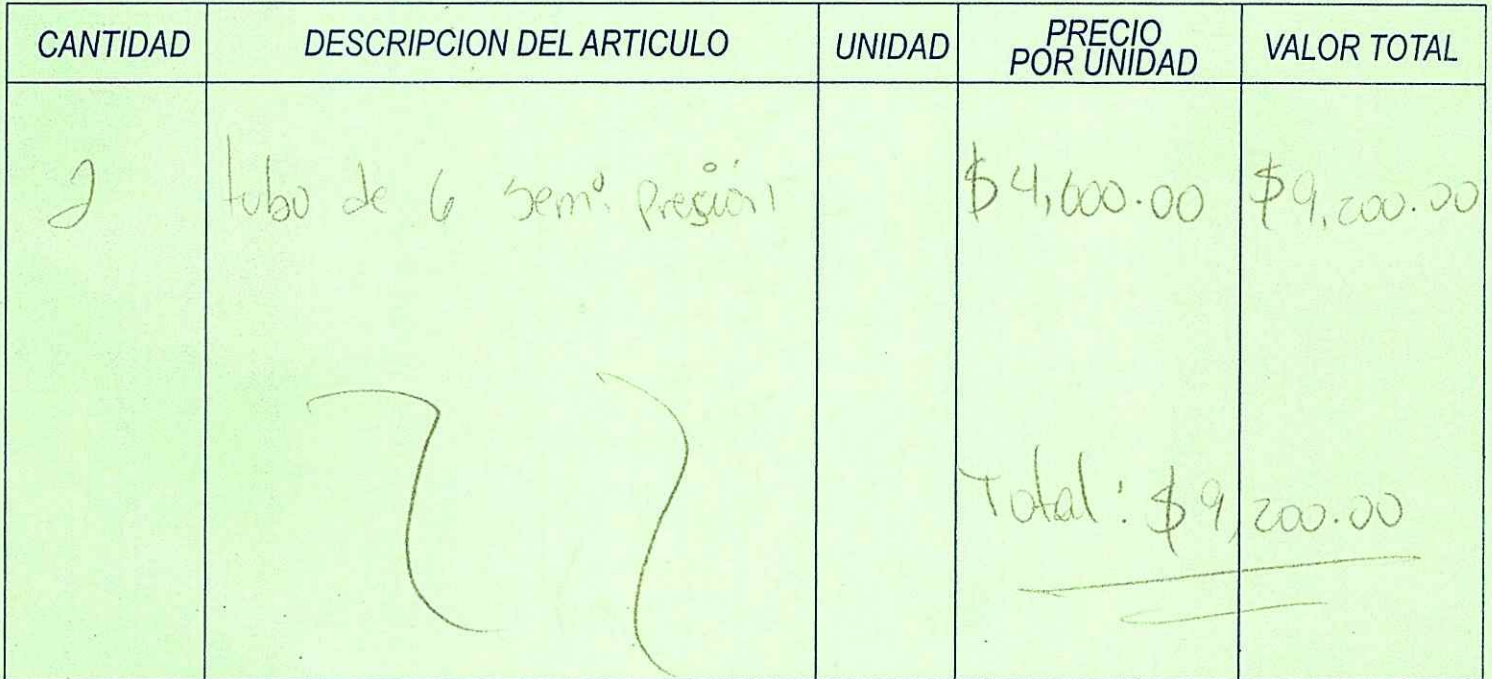 CANTIDAD DESCRIPCION DEL ARTICULO UNIDAD PRECIO POR UNIDAD VALOR TOTAL
2 tubo de 6 semi presión $4,600.00 $9,200.00
Total: $9,200.00